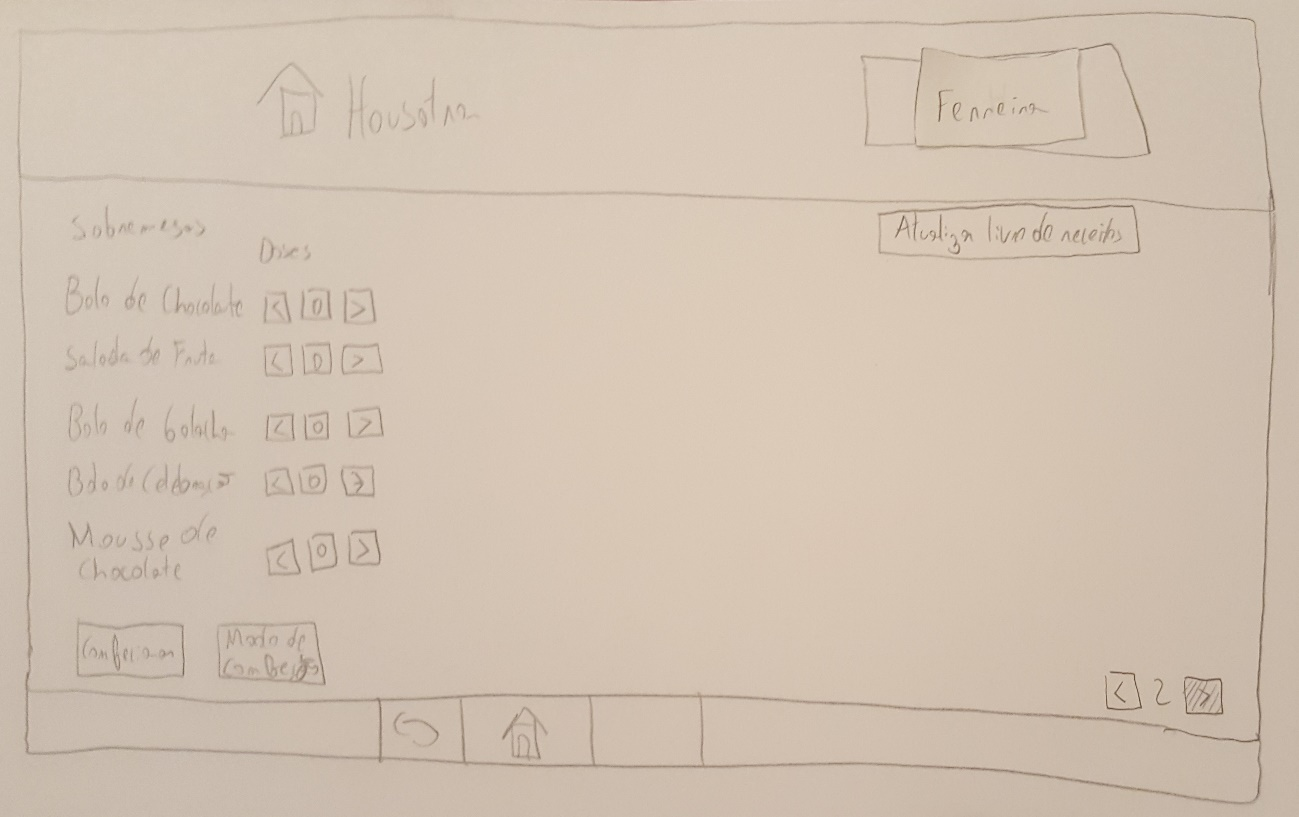 Housotna
Ferreira
Sobremesas
Atualizar livro de receitas
Doses
Bolo de Chocolate < 0 >
Salada de Fruta < 0 >
Bolo de bolacha < 0 >
Bolo de < 0 >
Mousse de
Chocolate < 0 >
Confecionar
Modo de
< 2 >